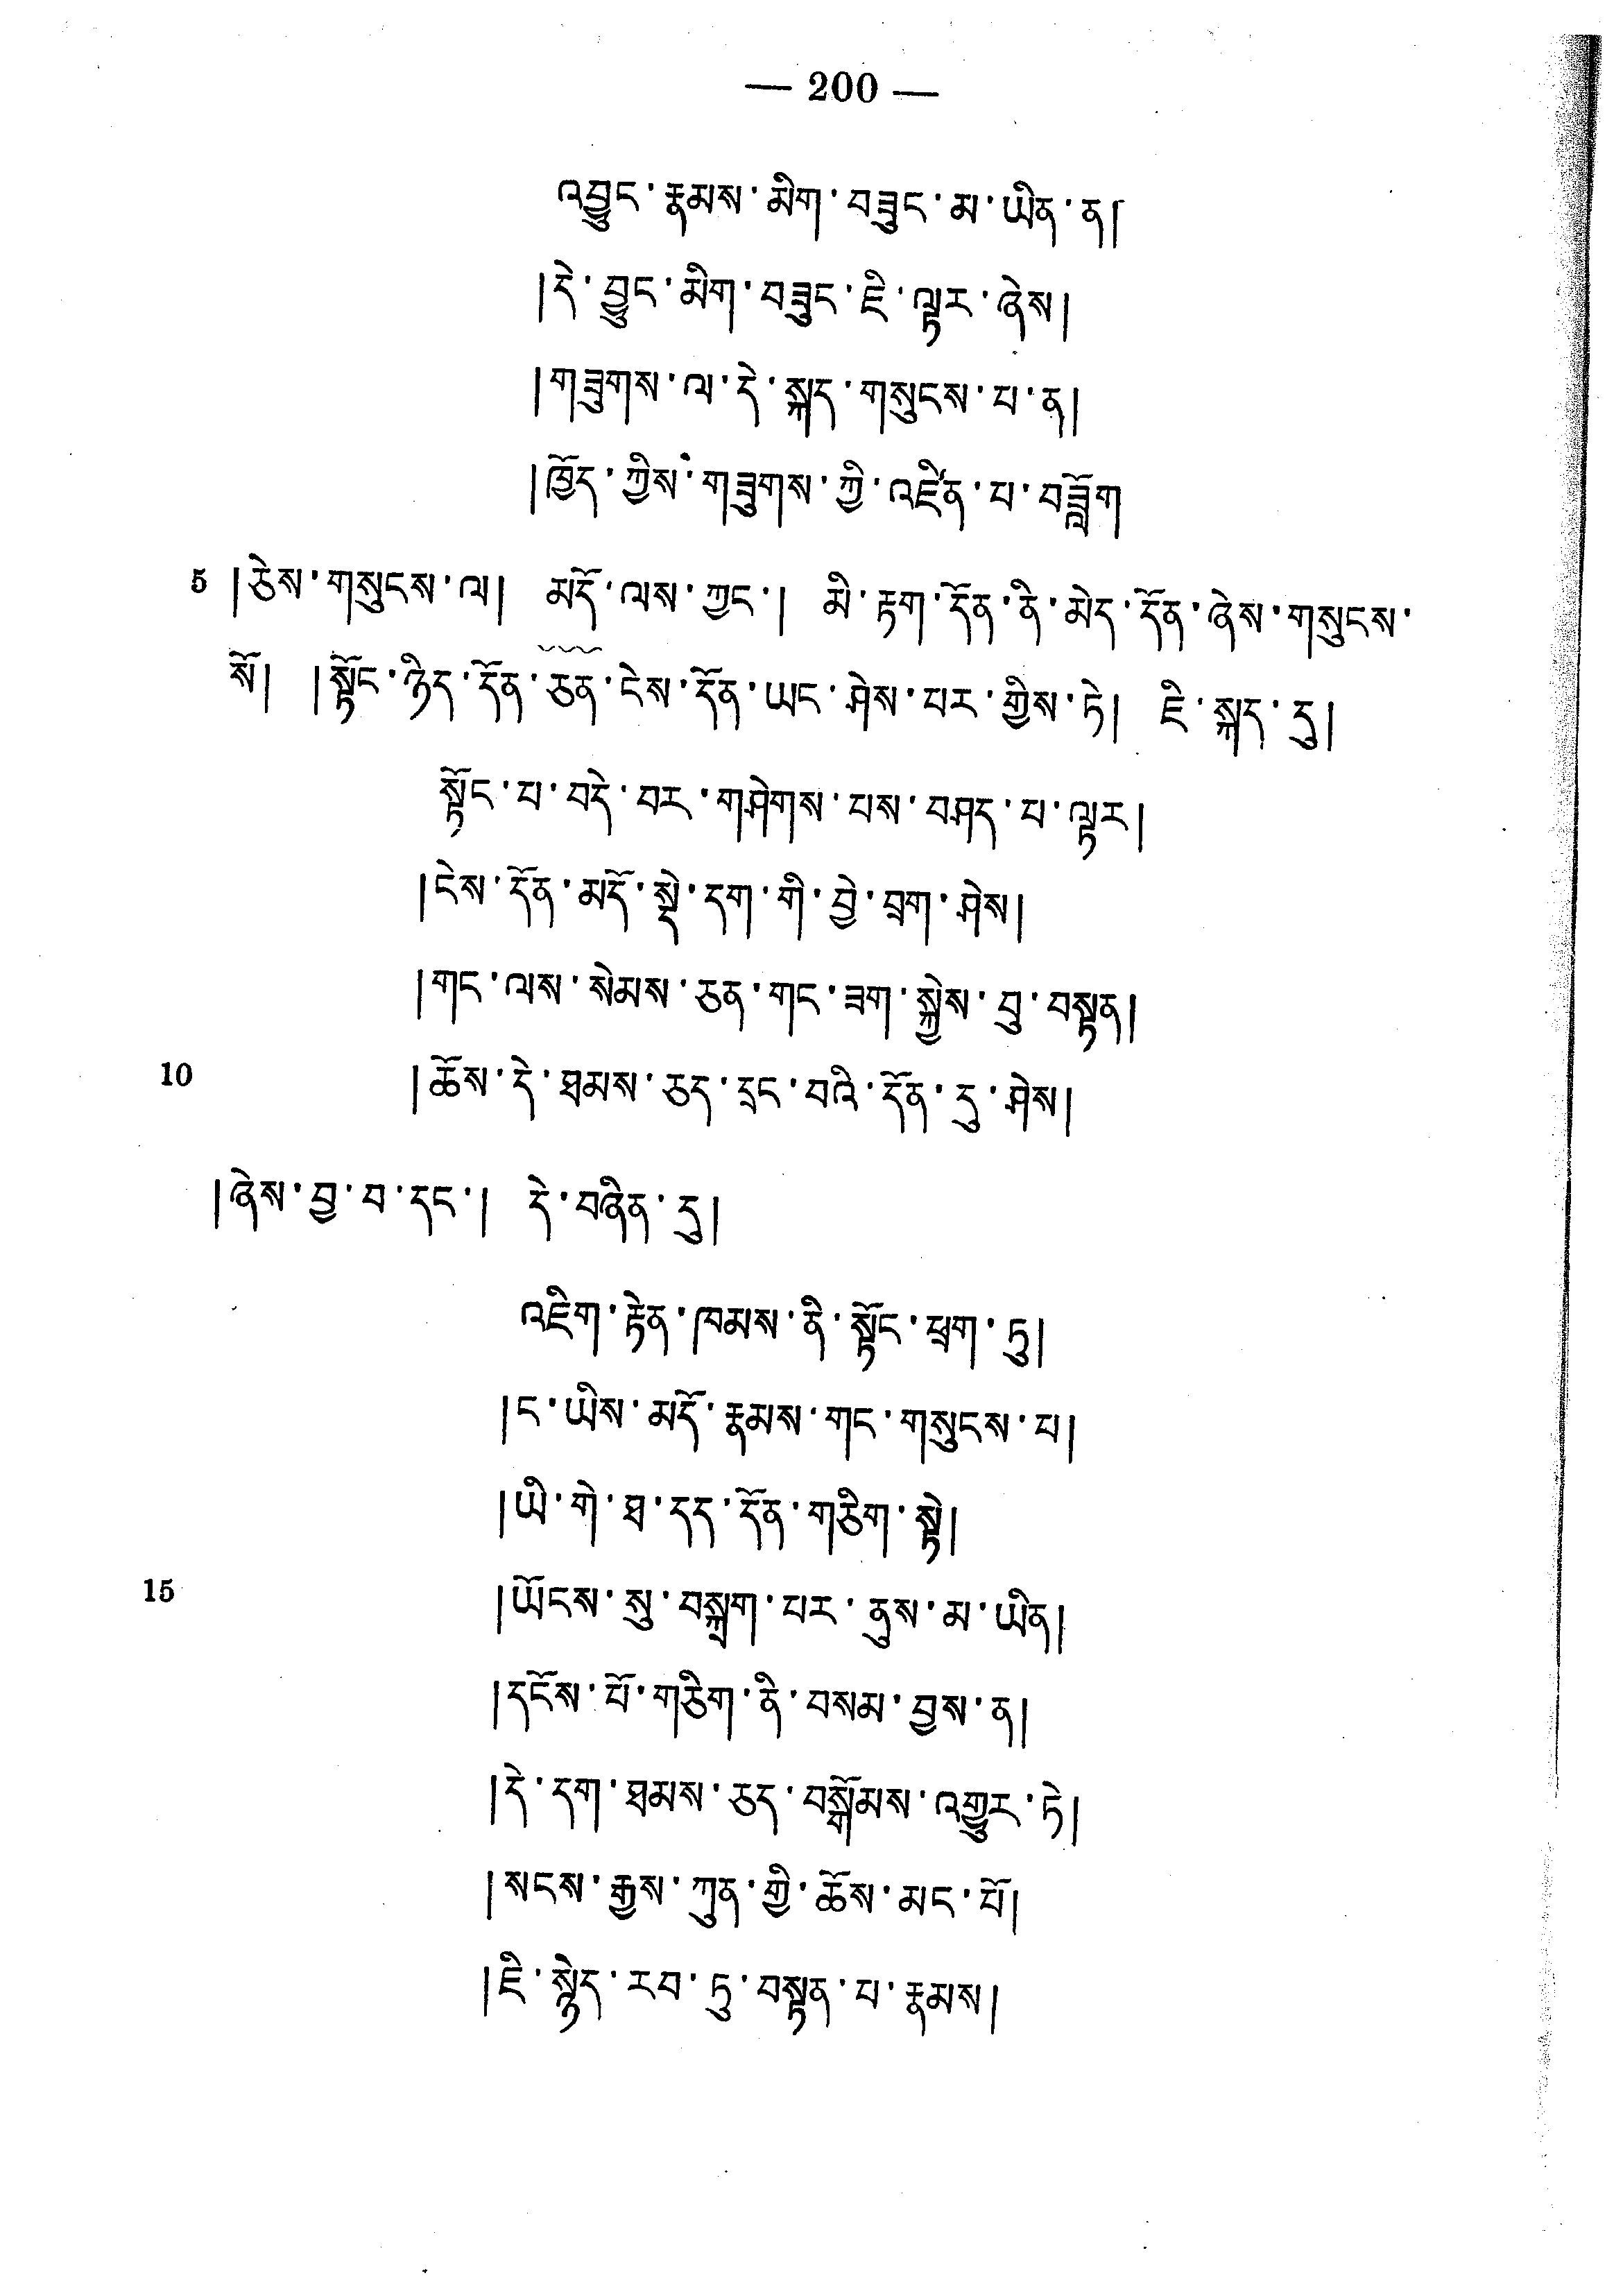 — 200 —
འབྱུང་རྣམས་མིག་བཟུང་མ་ཡིན་ན།
།དེ་བྱུང་མིག་བཟུང་ཇི་ལྟར་ཞེས།
།གཟུགས་ལ་དེ་སྐད་གསུངས་པ་ན།
།ཁྱོད་ཀྱིས་གཟུགས་ཀྱི་འཛིན་པ་བཟློག
5 །ཅེས་གསུངས་ལ། མདོ་ལས་ཀྱང་། མི་རྟག་དོན་ནི་མེད་དོན་ཞེས་གསུངས་
སོ། །སྟོང་ཉིད་དོན་ཅན་ངེས་དོན་ཡང་ཤེས་པར་གྱིས་ཏེ། ཇི་སྐད་དུ།
སྟོང་པ་བདེ་བར་གཤེགས་པས་བཤད་པ་ལྟར།
།ངེས་དོན་མདོ་སྡེ་དག་གི་བྱེ་བྲག་ཤེས།
།གང་ལས་སེམས་ཅན་གང་ཟག་སྐྱེས་བུ་བསྟན།
10 །ཆོས་དེ་ཐམས་ཅད་དྲང་བའི་དོན་དུ་ཤེས།
།ཞེས་བྱ་བ་དང་། དེ་བཞིན་དུ།
འཇིག་རྟེན་ཁམས་ནི་སྟོང་ཕྲག་ཏུ།
།ང་ཡིས་མདོ་རྣམས་གང་གསུངས་པ།
།ཡི་གེ་ཐ་དད་དོན་གཅིག་སྟེ།
15 །ཡོངས་སུ་བསྐླག་པར་ནུས་མ་ཡིན།
།དངོས་པོ་གཅིག་ནི་བསམ་བྱས་ན།
།དེ་དག་ཐམས་ཅད་བསྒོམས་འགྱུར་ཏེ།
།སངས་རྒྱས་ཀུན་གྱི་ཆོས་མང་པོ།
།ཇི་སྙེད་རབ་ཏུ་བསྟན་པ་རྣམས།